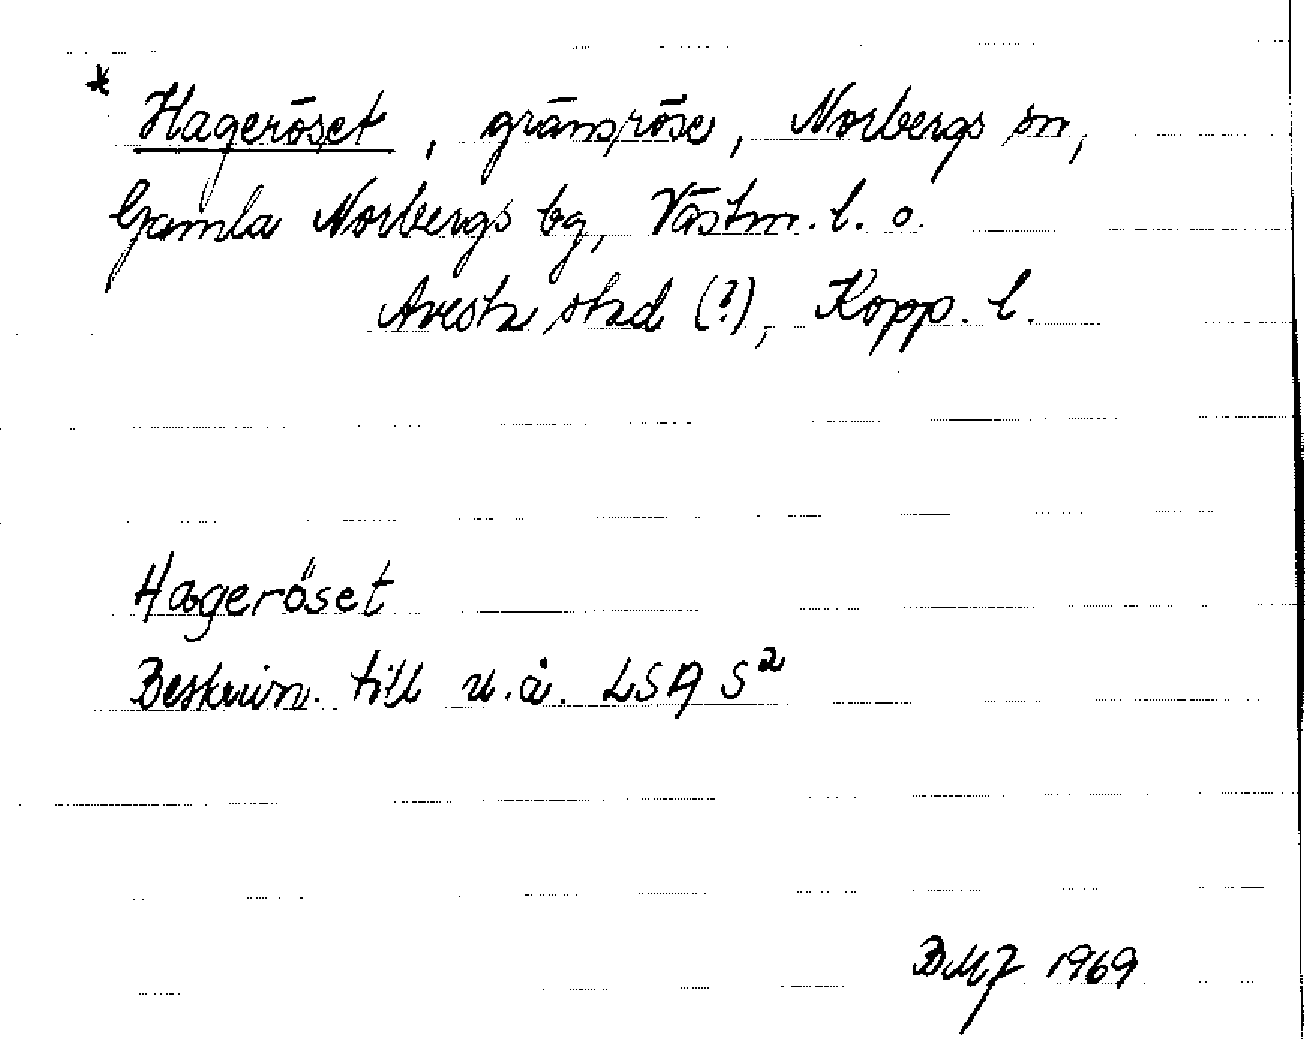 * Hageröset, gränsröse, Norbergs sn,
Gamla Norbergs bg, Västm. l. o.
Avesta stad (?), Kopp. l.
Hageröset
Beskrivn. till u.å. LSA S²
BMJ 1969